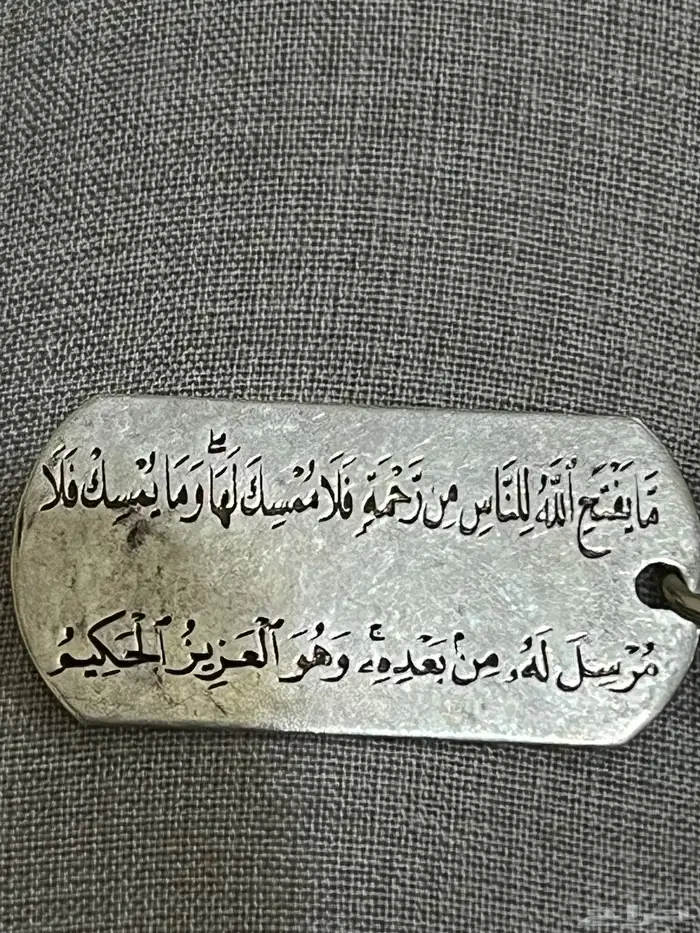 مَّا يَفْتَحِ ٱللَّهُ لِلنَّاسِ مِن رَّحْمَةٍۢ فَلَا مُمْسِكَ لَهَا ۖ وَمَا يُمْسِكْ فَلَا
مُرْسِلَ لَهُۥ مِنۢ بَعْدِهِۦ ۚ وَهُوَ ٱلْعَزِيزُ ٱلْحَكِيمُ
حراج